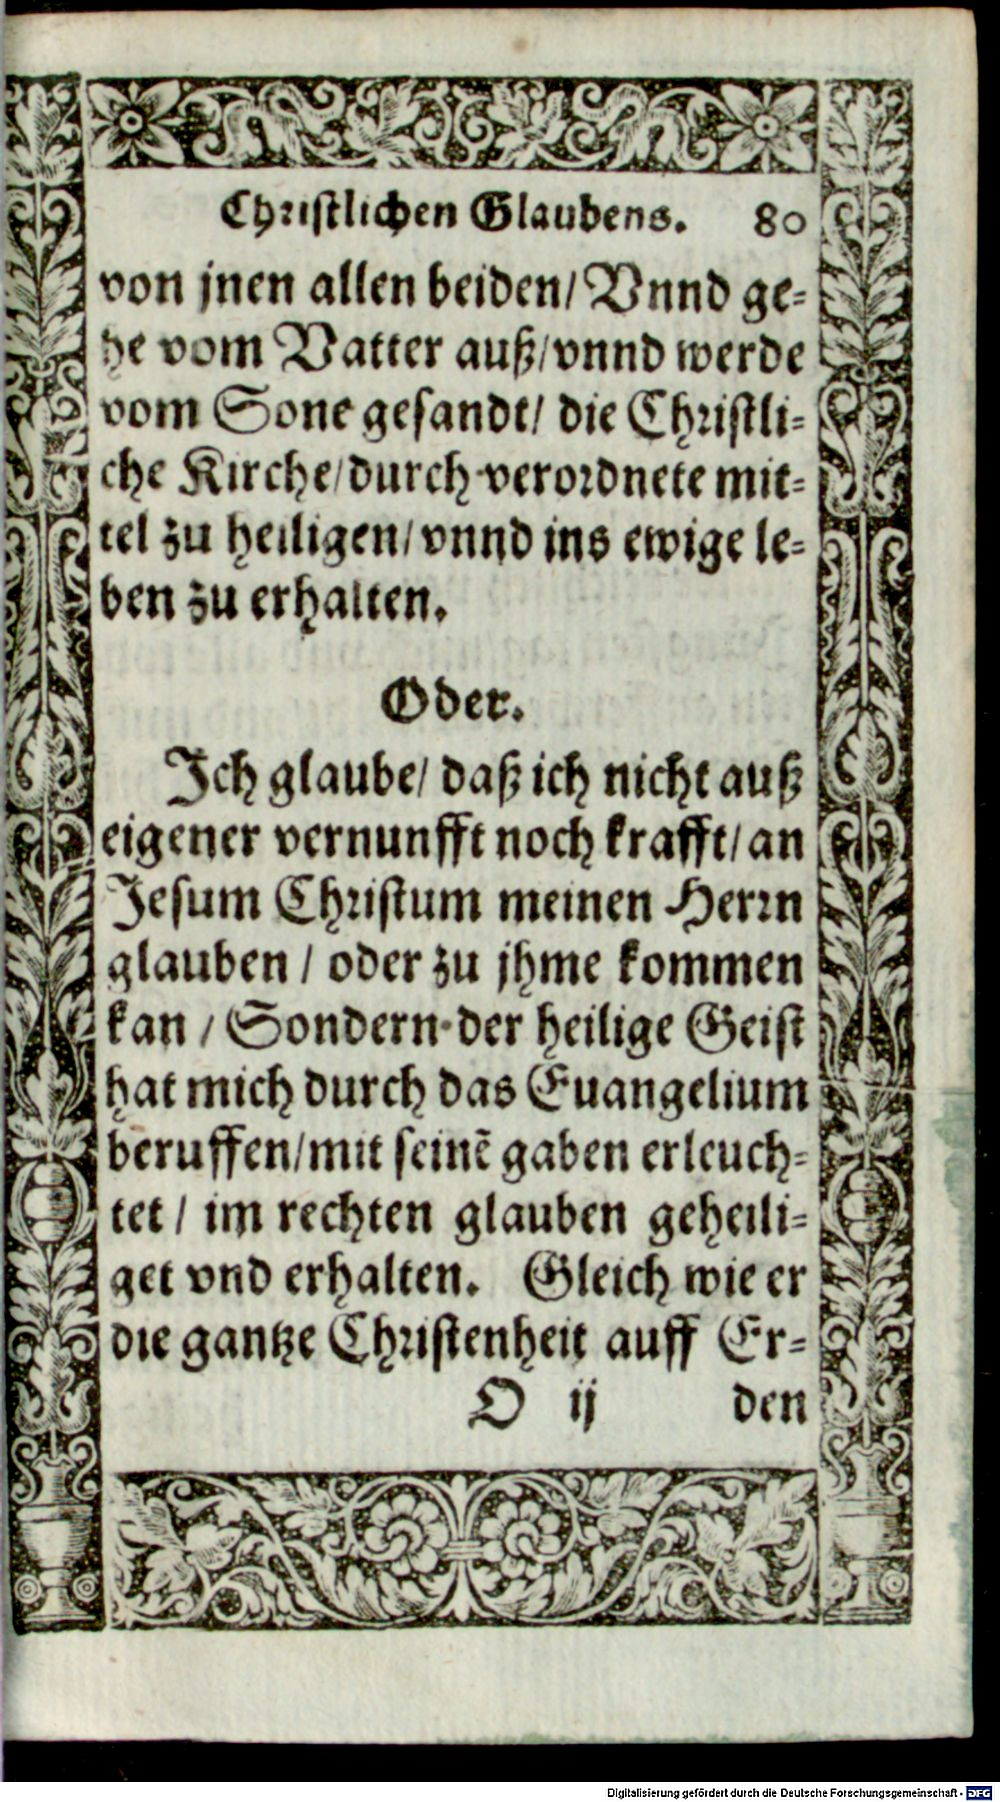 Christlichen Glaubens. 80
von jnen allen beiden/ Vnnd ge-
he vom Vatter auß/ vnnd werde
vom Sone gesandt/ die Christli-
che Kirche/ durch verordnete mit-
tel zu heiligen/ vnnd ins ewige le-
ben zu erhalten.
Oder.
Ich glaube/ daß ich nicht auß
eigener vernunfft noch krafft/ an
Jesum Christum meinen Herrn
glauben / oder zu jhme kommen
kan / Sondern der heilige Geist
hat mich durch das Euangelium
beruffen/ mit seinē gaben erleuch-
tet / im rechten glauben geheili-
get vnd erhalten. Gleich wie er
die gantze Christenheit auff Er-
O ij den
Digitalisierung gefördert durch die Deutsche Forschungsgemeinschaft - DFG